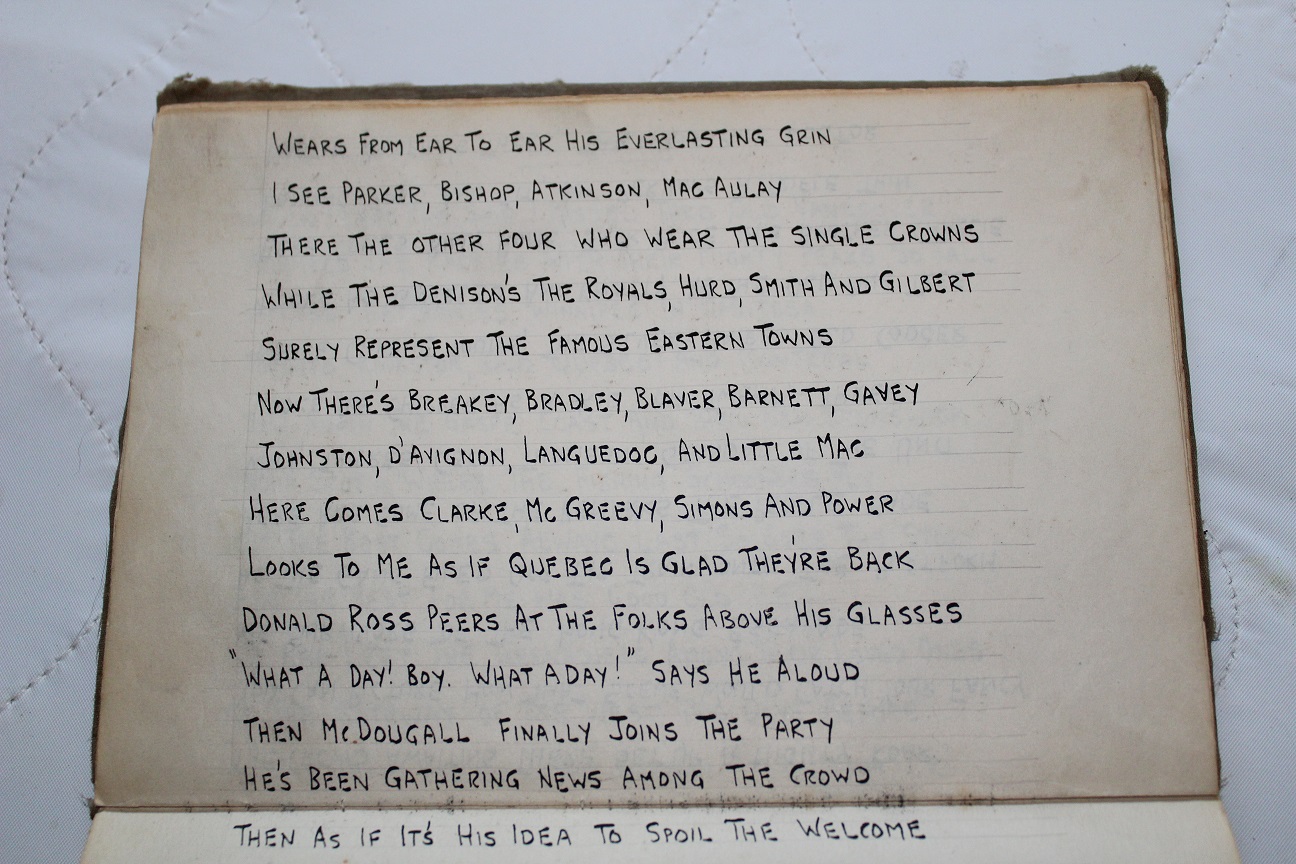 Wears From Ear To Ear His Everlasting Grin
I See Parker, Bishop, Atkinson, Mac Aulay
There The Other Four Who Wear The Single Crowns
While The Denison's The Royals, Hurd, Smith And Gilbert
Surely Represent The Famous Eastern Towns
Now There's Breakey, Bradley, Blaver, Barnett, Gavey
Johnston, D'Avignon, Languedoc, And Little Mac
Here Comes Clarke, Mc Greevy, Simons And Power
Looks To Me As If Quebec Is Glad They're Back
Donald Ross Peers At The Folks Above His Glasses
"What A Day! Boy. What A Day!" Says He Aloud
Then McDougall Finally Joins The Party
He's Been Gathering News Among The Crowd
Then As If It's His Idea To Spoil The Welcome